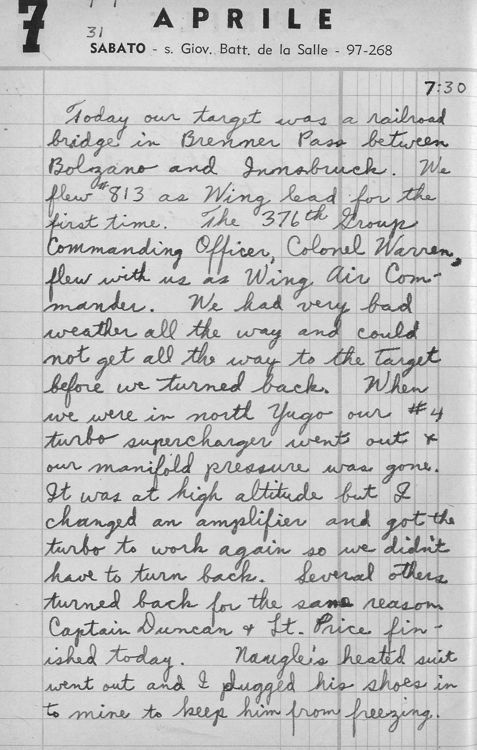 7 APRILE
31
SABATO - s. Giov. Batt. de la Salle - 97-268
7:30
Today our target was a railroad
bridge in Brenner Pass between
Bolzano and Innsbruck. We
flew #813 as Wing lead for the
first time. The 376th Group
Commanding Officer, Colonel Warren,
flew with us as Wing Air Com-
mander. We had very bad
weather all the way and could
not get all the way to the target
before we turned back. When
we were in north Yugo our #4
turbo supercharger went out &
our manifold pressure was gone.
It was at high altitude but I
changed an amplifier and got the
turbo to work again so we didn't
have to turn back. Several others
turned back for the same reason.
Captain Duncan & Lt. Price fin-
ished today. Naugle's heated suit
went out and I plugged his shoes in
to mine to keep him from freezing.